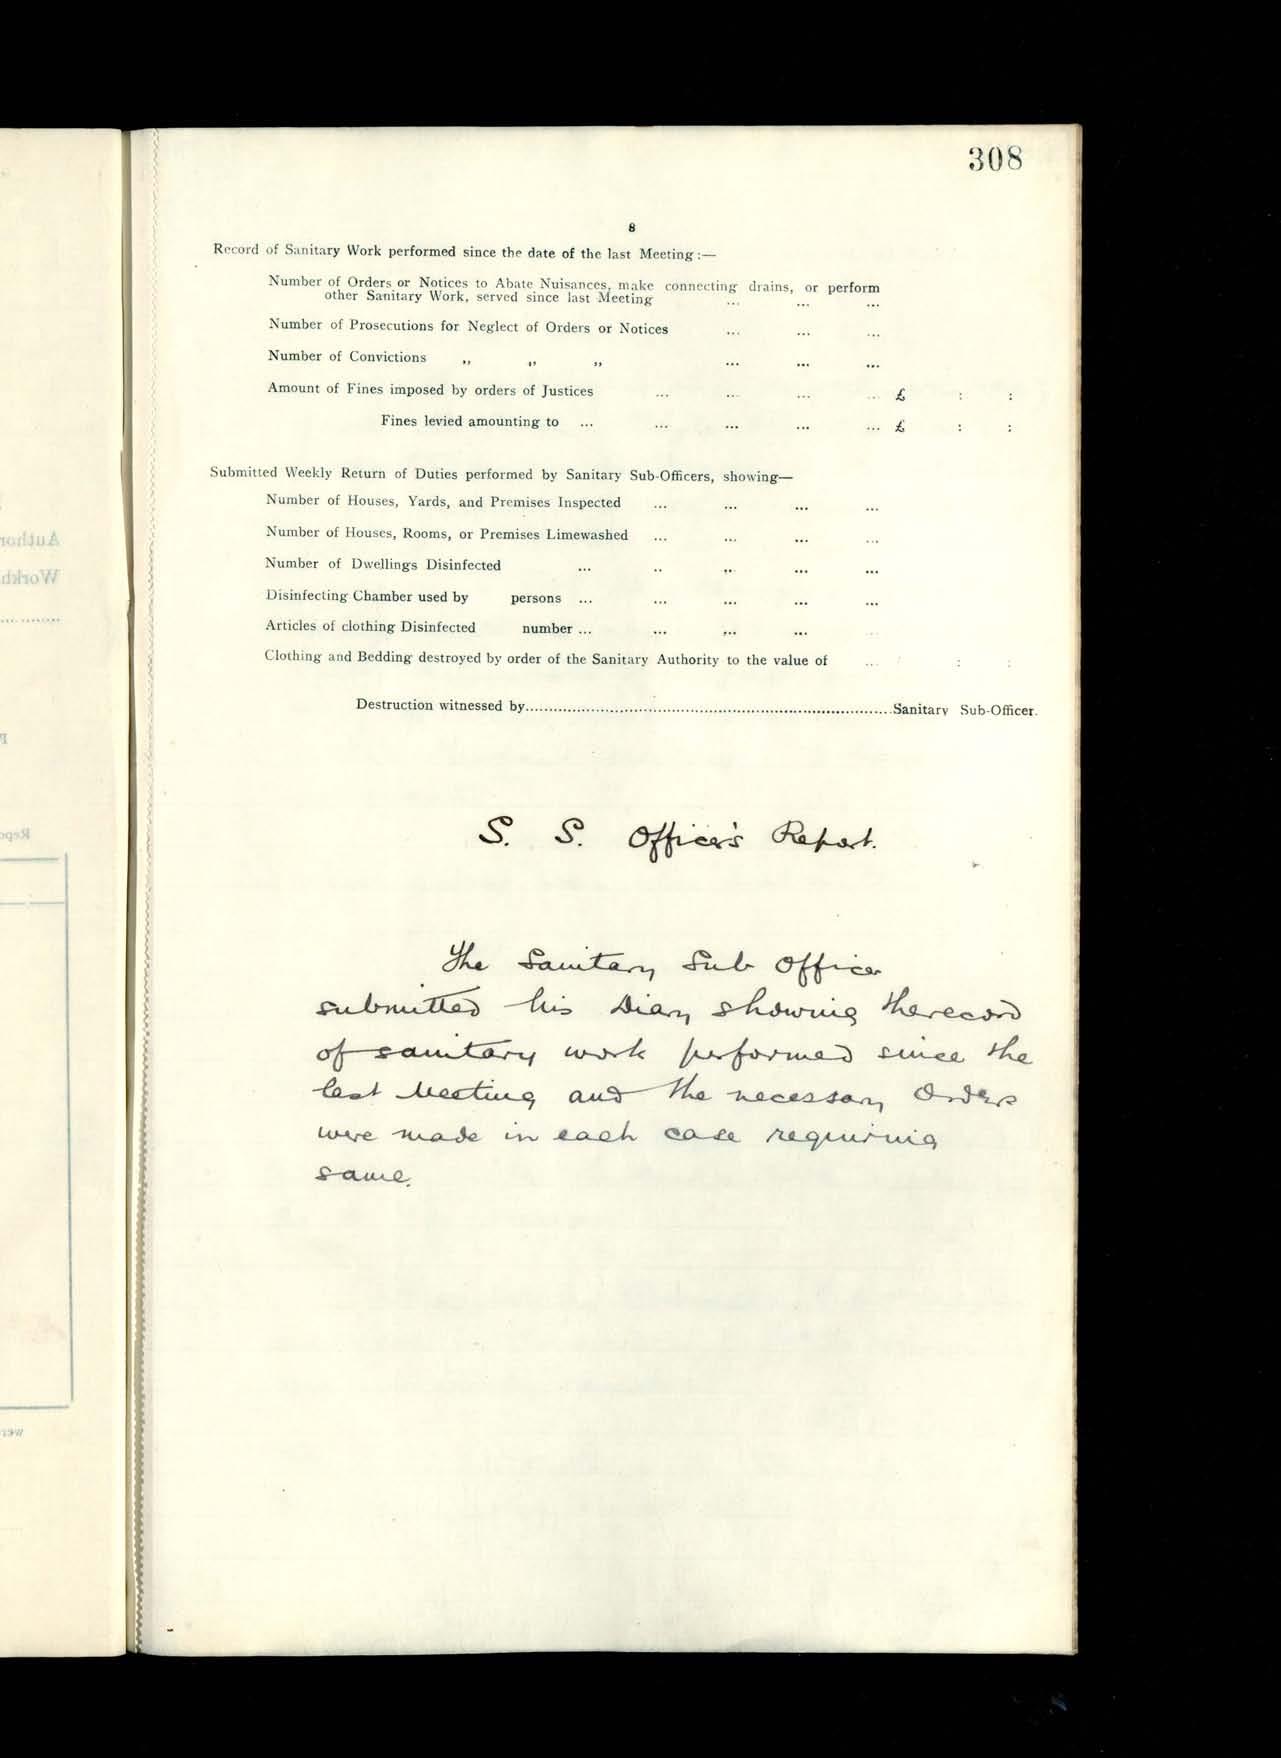 308
8
Record of Sanitary Work performed since the date of the last Meeting :—
Number of Orders or Notices to Abate Nuisances, make connecting drains, or perform
other Sanitary Work, served since last Meeting ... ... ...
Number of Prosecutions for Neglect of Orders or Notices ... ... ...
Number of Convictions ,, ,, ,, ... ... ...
Amount of Fines imposed by orders of Justices ... ... ... ... £ : :
Fines levied amounting to ... ... ... ... ... £ : :
Submitted Weekly Return of Duties performed by Sanitary Sub-Officers, showing—
Number of Houses, Yards, and Premises Inspected ... ... ... ...
Number of Houses, Rooms, or Premises Limewashed ... ... ... ...
Number of Dwellings Disinfected ... .. ... ... ...
Disinfecting Chamber used by persons ... ... ... ... ...
Articles of clothing Disinfected number ... ... ... ... ...
Clothing and Bedding destroyed by order of the Sanitary Authority to the value of ... : :
Destruction witnessed by..........Sanitary Sub-Officer.
S. S. Officer's Report.
The Sanitary Sub Officer
submitted his Diary showing the record
of sanitary work performed since the
last Meeting and the necessary Orders
were made in each case requiring
same.